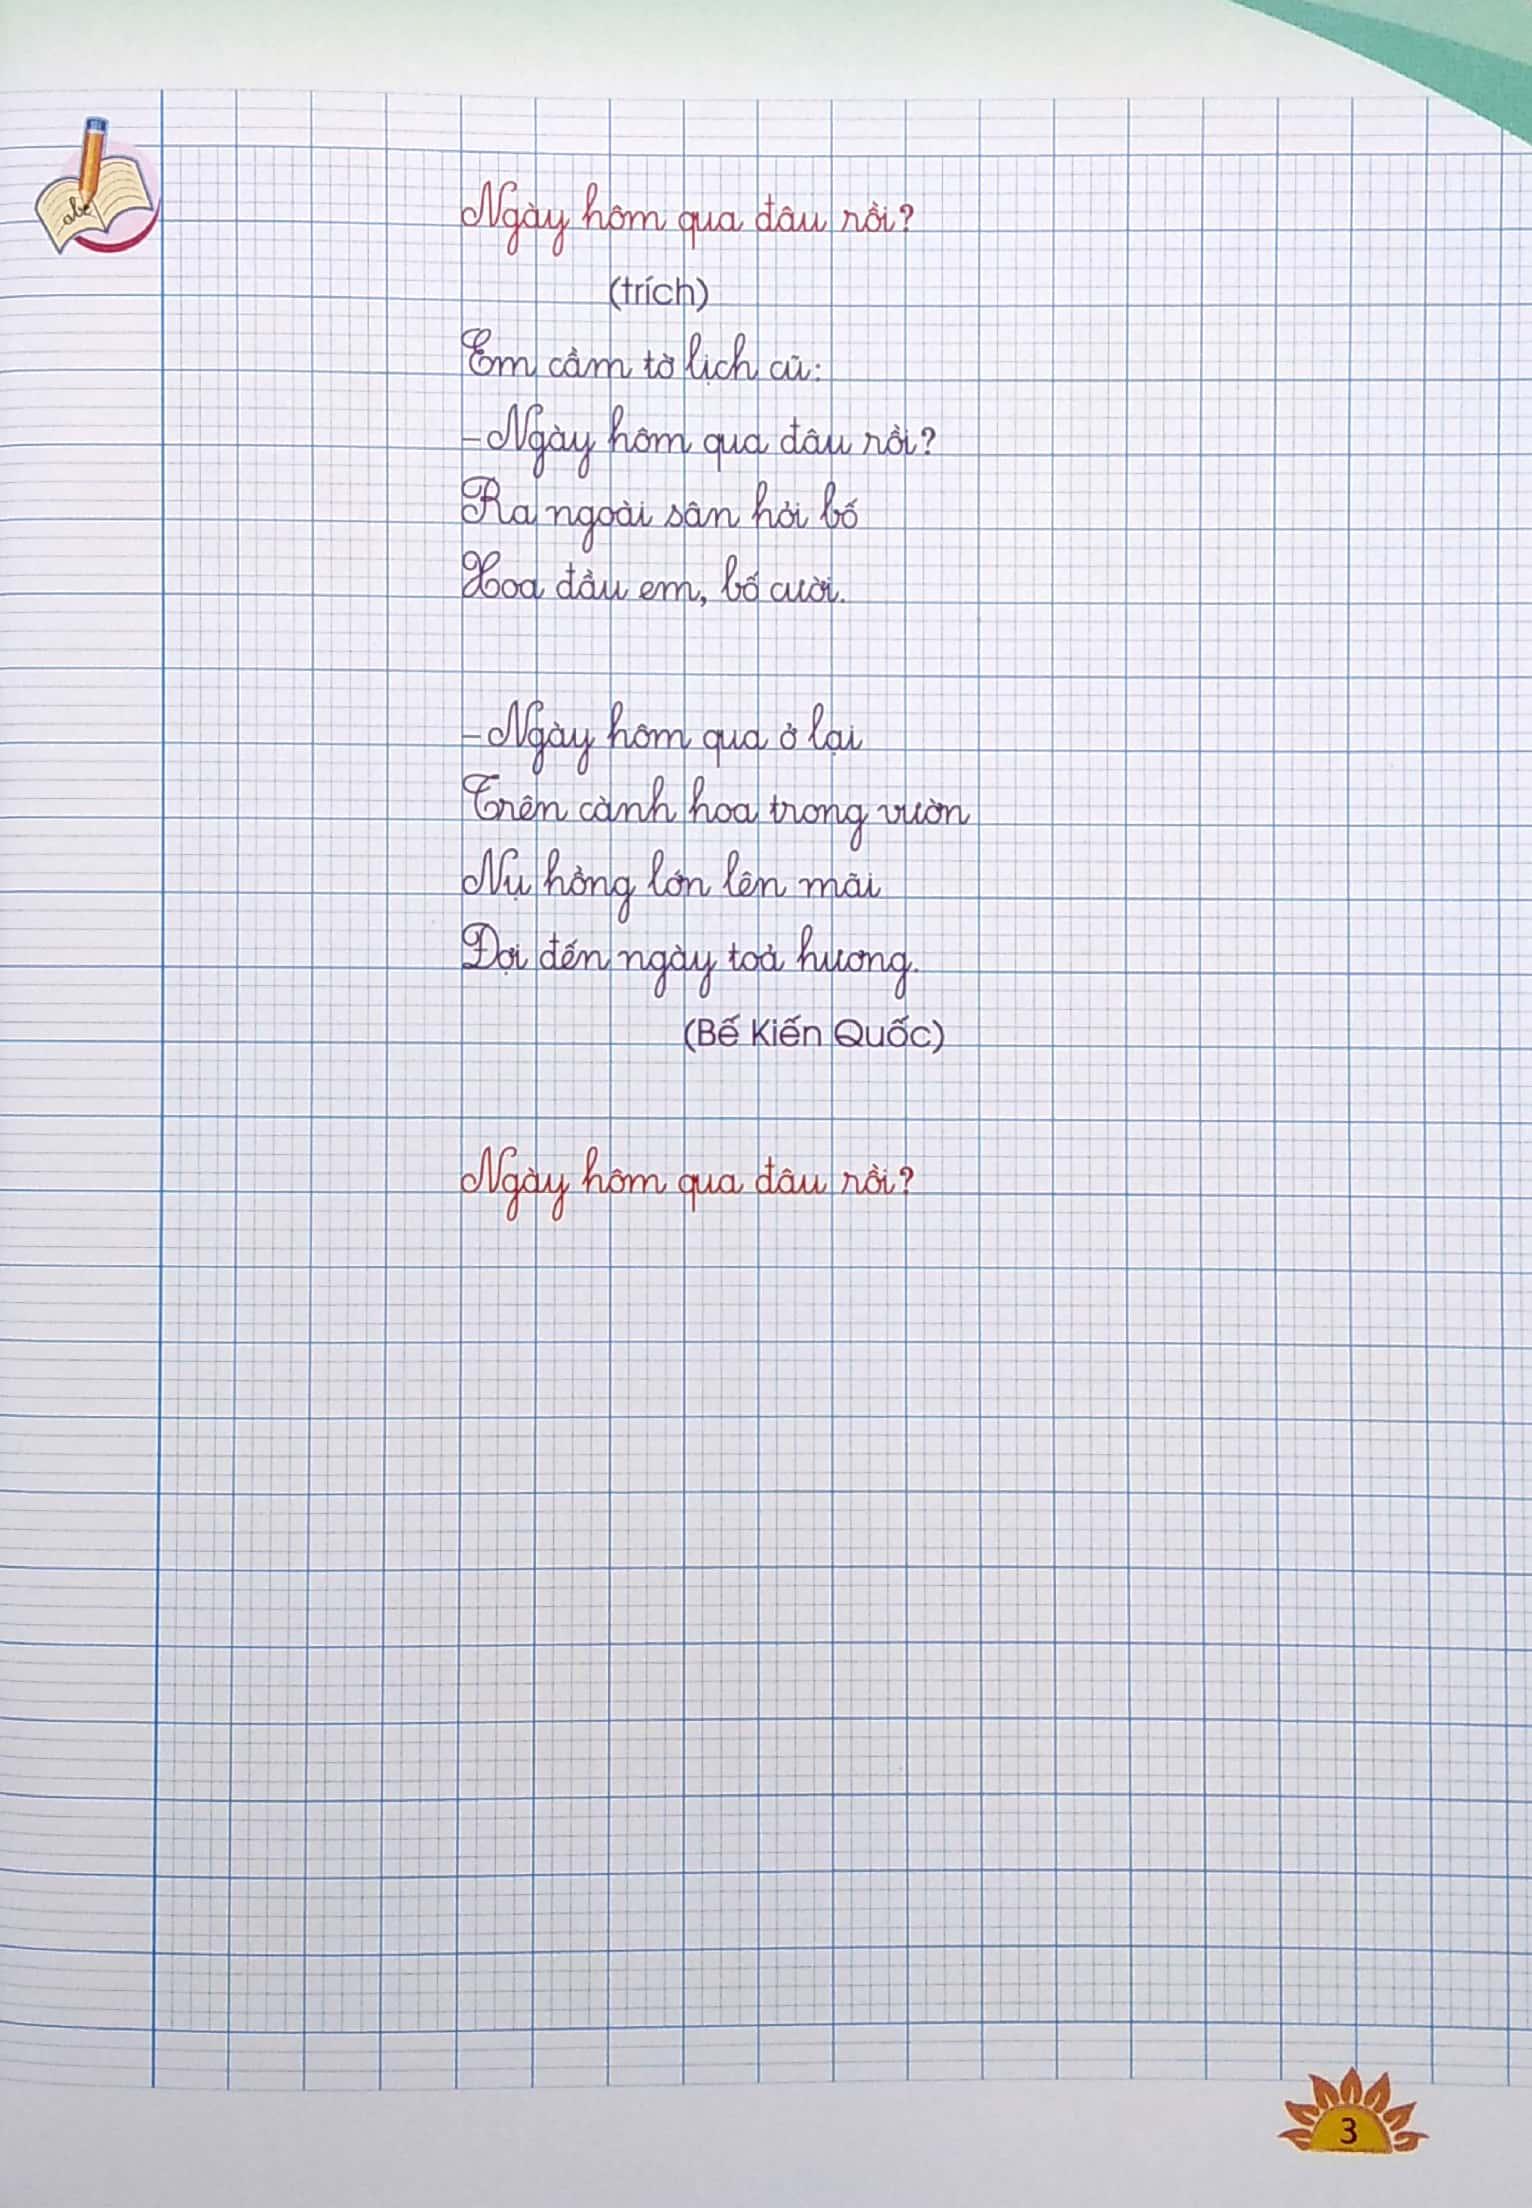 abc
Ngày hôm qua đâu rồi?
(trích)
Em cầm tờ lịch cũ:
– Ngày hôm qua đâu rồi?
Ra ngoài sân hỏi bố
Xoa đầu em, bố cười.
– Ngày hôm qua ở lại
Trên cành hoa trong vườn
Nụ hồng lớn lên mãi
Đợi đến ngày toả hương.
(Bế Kiến Quốc)
Ngày hôm qua đâu rồi?
3